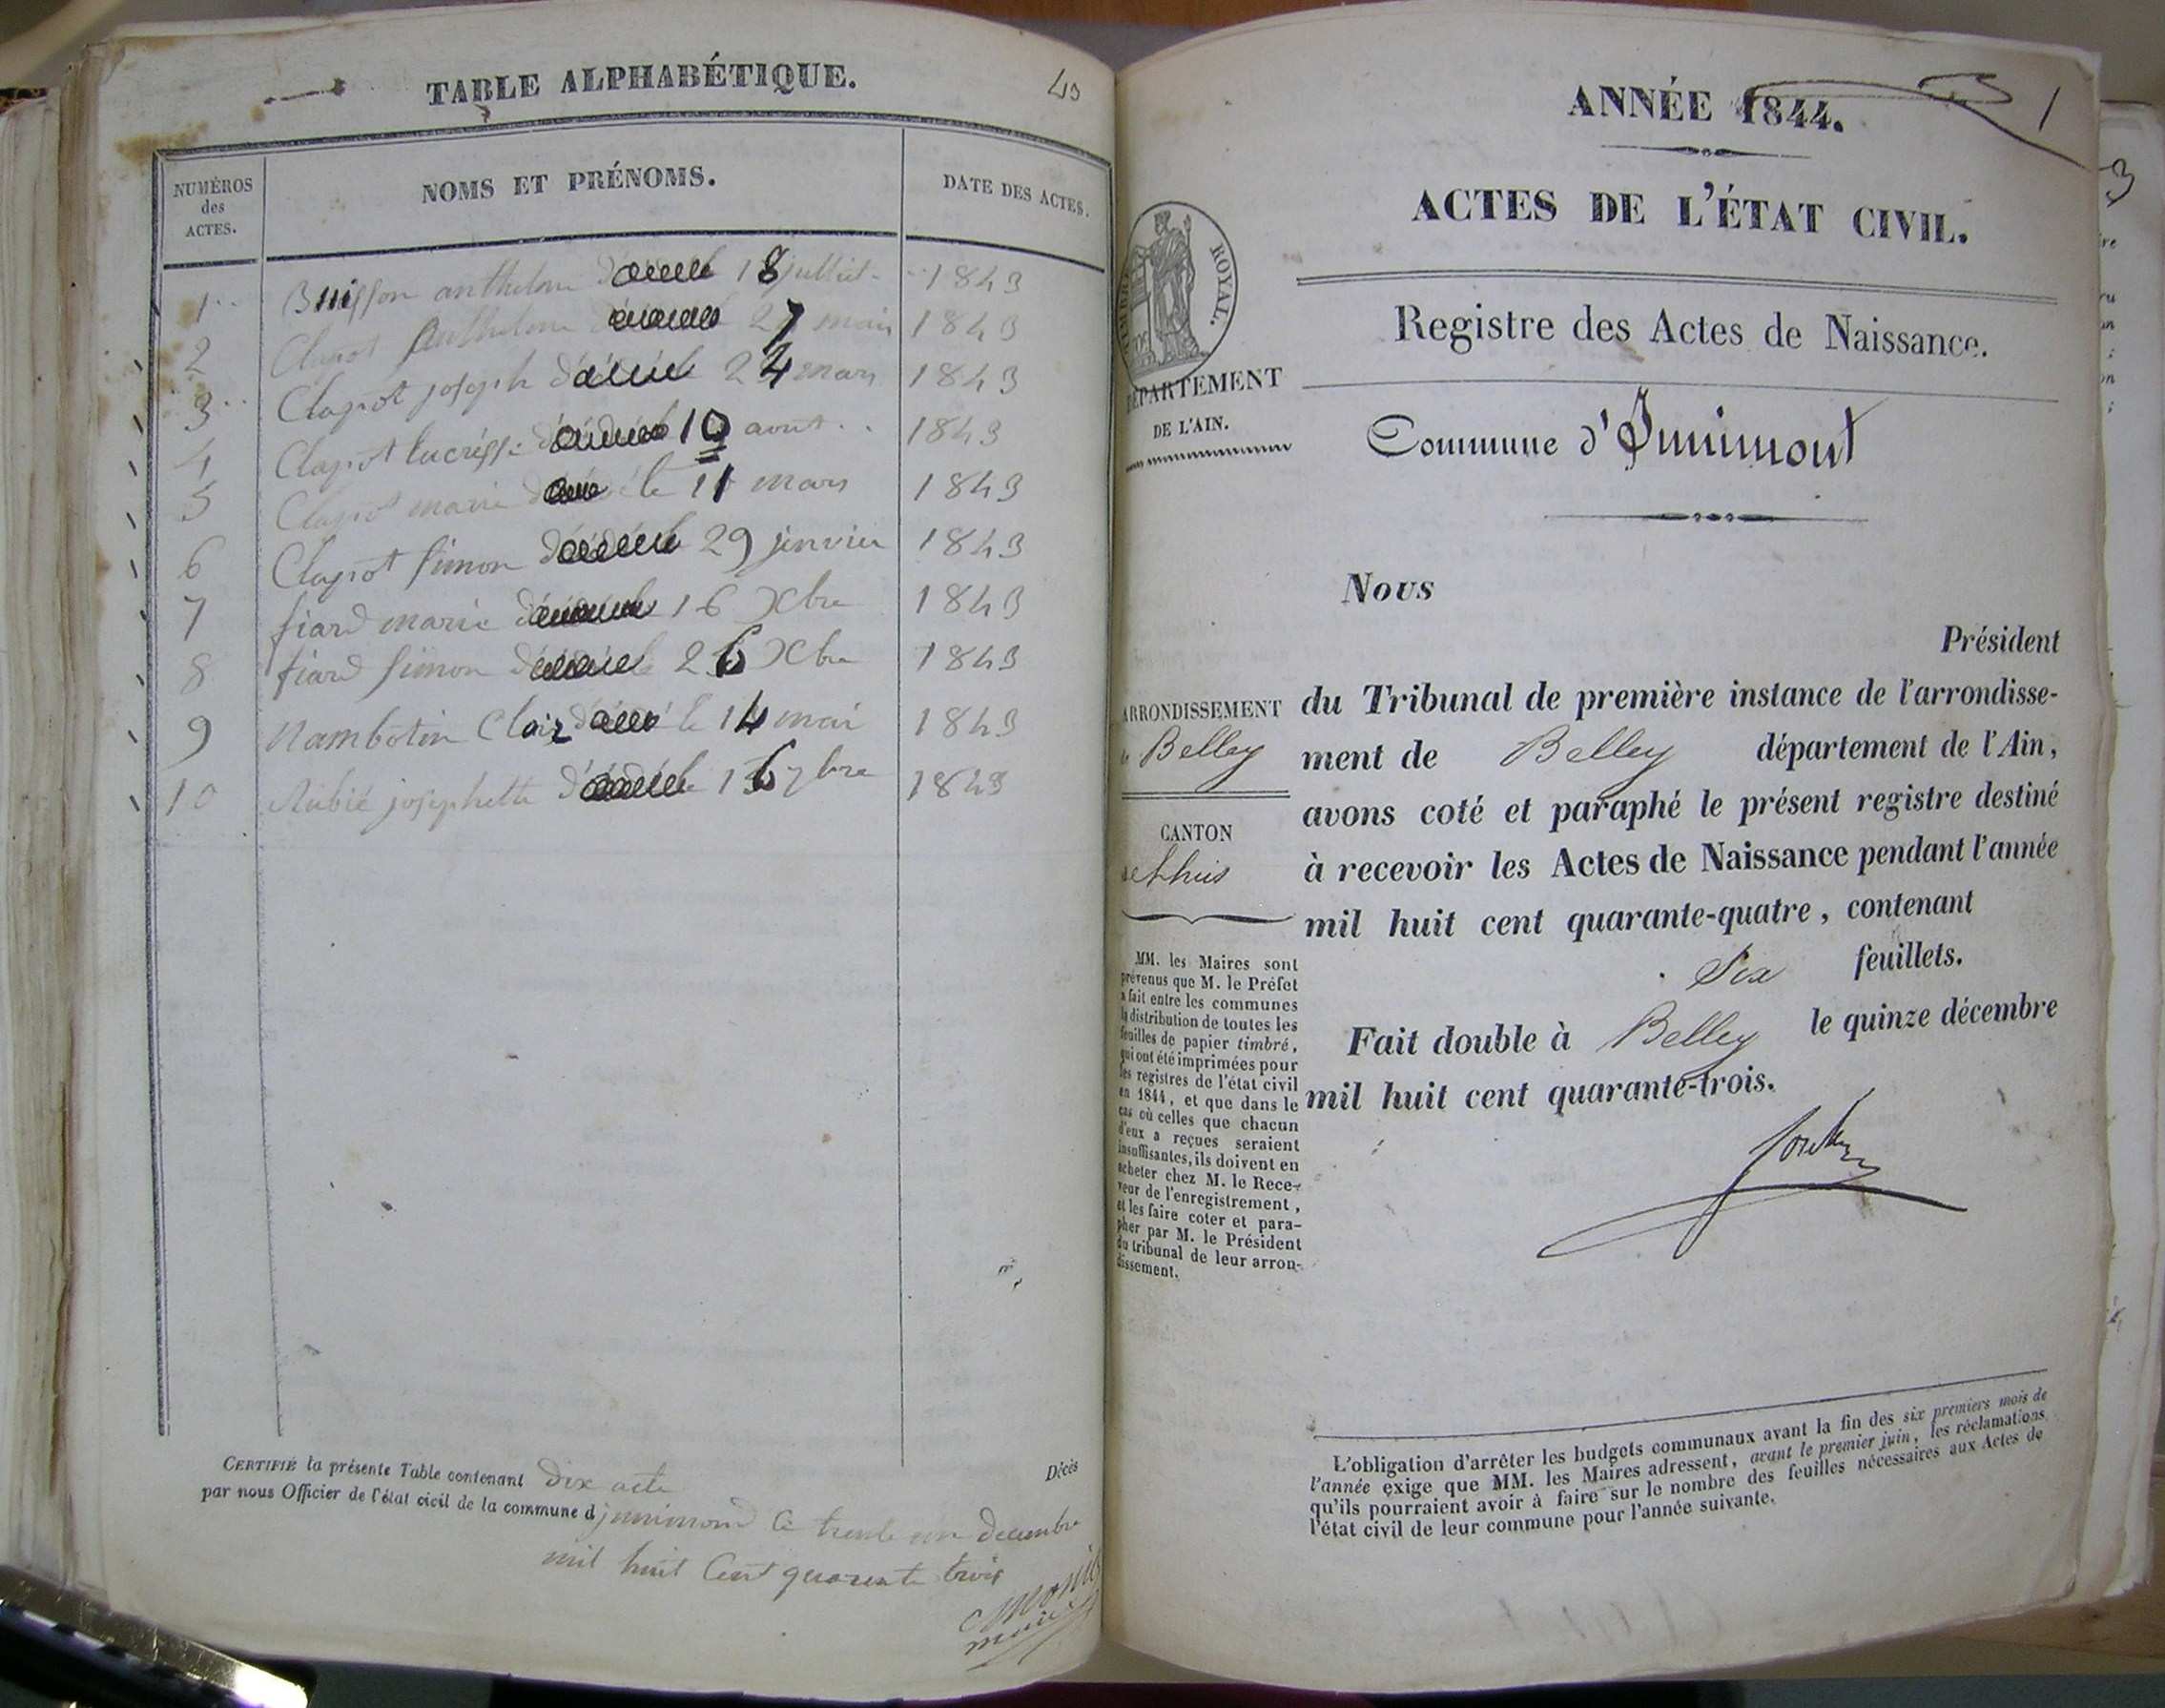 TABLE ALPHABÉTIQUE.
40
NUMÉROS
des
ACTES.
NOMS ET PRÉNOMS.
DATE DES ACTES.
1 Buisson anthelme 18 juillet 1843
2 Clapot Anthelme 27 mai 1843
3 Clapot joseph 24 mars 1843
4 Clapot lucresse 10 aout 1843
5 Clapot marie le 11 mars 1843
6 Clapot Simon 29 jenvier 1843
7 fiard marie 16 Xbre 1843
8 fiard Simon 26 Xbre 1843
9 Nambotin Clair le 14 mai 1843
10 Rubié josephette 16 7bre 1843
CERTIFIÉ la présente Table contenant dix acte
Décès
par nous Officier de l'état civil de la commune d junimond Ce trente un decembre
mil huit Cent quarente trois
ANNÉE 1844.
1
ACTES DE L'ÉTAT CIVIL.
TIMBRE ROYAL.
Registre des Actes de Naissance.
DÉPARTEMENT
DE L'AIN.
Commune d'Innimont
Nous
Président
ARRONDISSEMENT
de Belley
du Tribunal de première instance de l'arrondisse-
ment de Belley département de l'Ain,
avons coté et paraphé le présent registre destiné
CANTON
de Lhuis
à recevoir les Actes de Naissance pendant l'année
mil huit cent quarante-quatre, contenant
Six feuillets.
Fait double à Belley le quinze décembre
mil huit cent quarante-trois.
MM. les Maires sont
prévenus que M. le Préfet
a fait entre les communes
la distribution de toutes les
feuilles de papier timbré,
qui ont été imprimées pour
les registres de l'état civil
en 1844, et que dans le
cas où celles que chacun
d'eux a reçues seraient
insuffisantes, ils doivent en
acheter chez M. le Rece-
veur de l'enregistrement,
et les faire coter et para-
pher par M. le Président
du tribunal de leur arron-
dissement.
L'obligation d'arrêter les budgets communaux avant la fin des six premiers mois de
l'année exige que MM. les Maires adressent, avant le premier juin, les réclamations
qu'ils pourraient avoir à faire sur le nombre des feuilles nécessaires aux Actes de
l'état civil de leur commune pour l'année suivante.